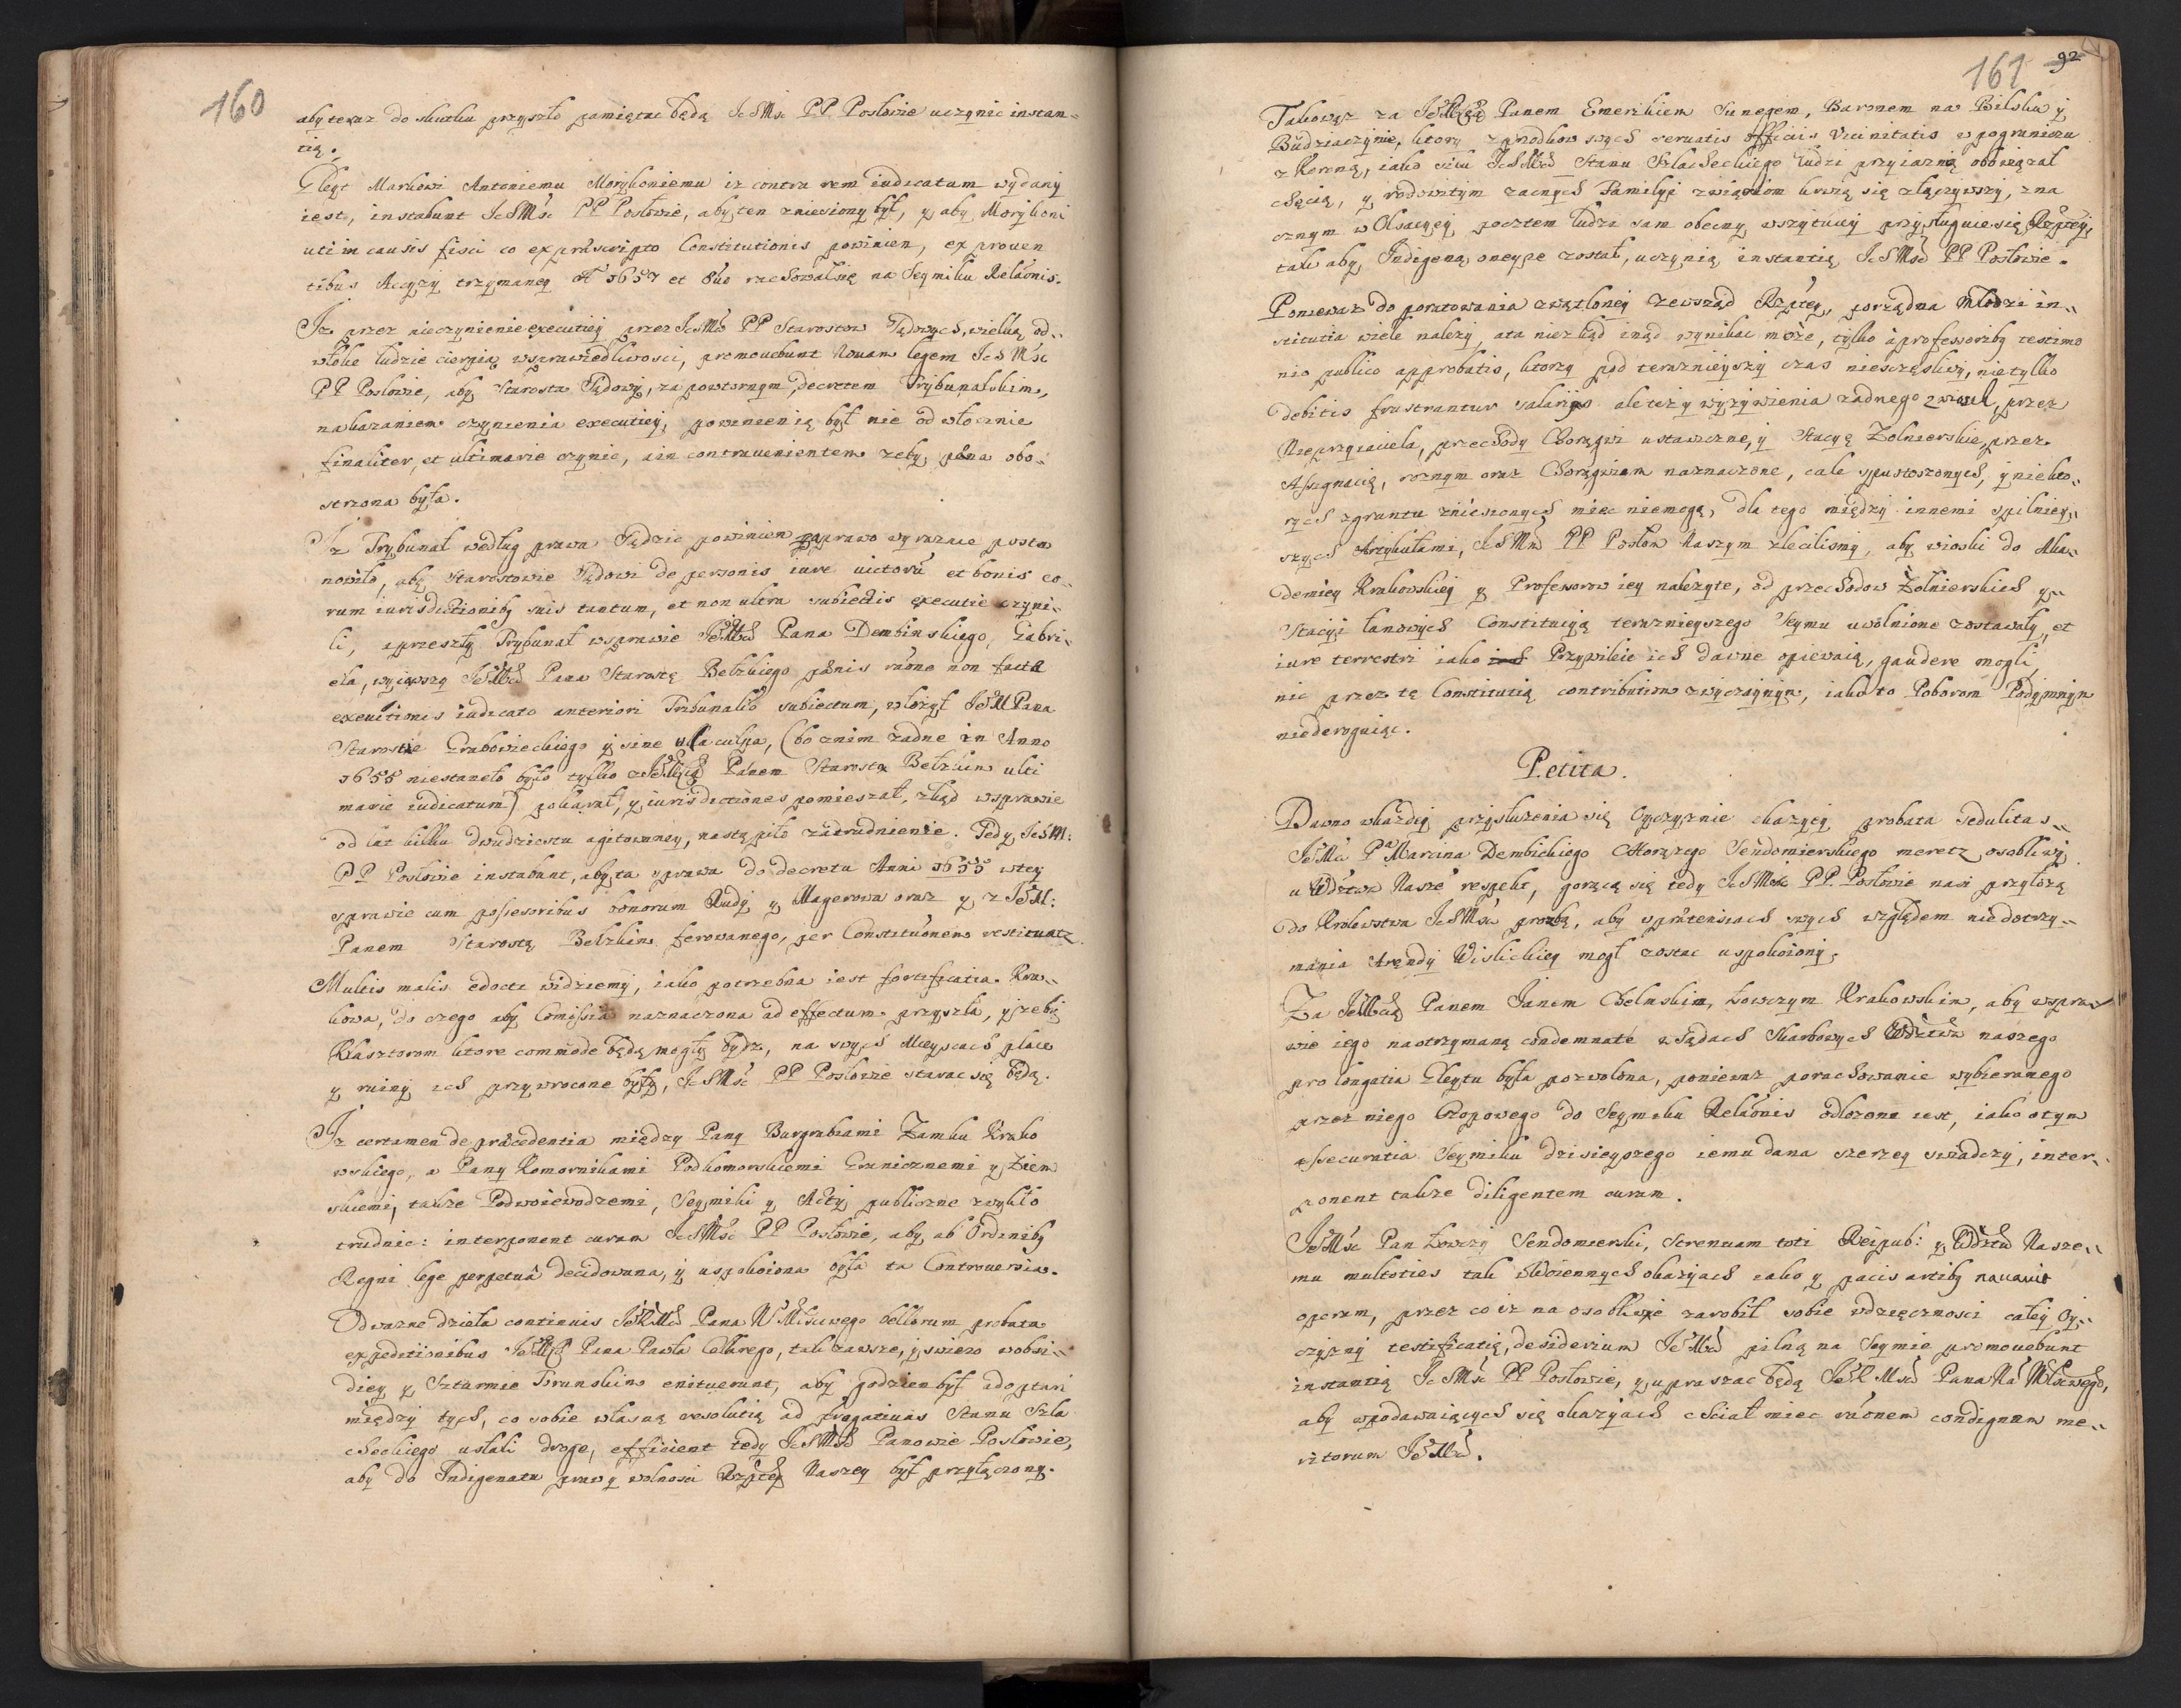 160
aby teraz do skutku przyszło pamiętac będą IchMść PP. Posłowie uczynic instan-
tią.
Gleyt Markowi Antoniemu Morykoniemu iz contra rem iudicatam wydany
iest, instabunt IchMść PP Posłowie, aby ten zniesiony był, y aby Morykoni
uti in causis fisci co ex præscripto Constitutionis powinien, ex proven
tibus Accyzy trzymaney A° 1657 et 8uo rachował się na Seymiku Relaonis.
Iz przez nieczynienie executiey przez IchMśćw PP Starostow Sądowych, wielką od-
włokę ludzie cierpią w sprawiedliwosci, promovebunt Novam legem IchMść
PP Posłowie, aby Starosta Sądowy, za powtornym decretem Trybunalskim,
nakazaniem czynienia executiey, powinien ią był nie odwłocznie
finaliter, et ultimarie czynic, a in contravenientem zeby pæna obo-
strzona była.
Iz Trybunał według prawa Sądzic powinien a prawo wyraznie posta
nowiło, aby Starostowie Sądowi de personis iure victorũ et bonis eo-
rum iurisdictioniby suis tantum, et non ultra subiectis executie czyni-
li, a przeszły Trybunał w sprawie JeMści Pana Dembinskiego, Gabri-
ela, wyiąwszy JeMści Pana Starostę Bełzkiego pænis raone non factæ
executionis iudicato anteriori Tribunalis subiectum, włozył JeM Pana
Staroste Grabowieckiego y sine ulla culpa, (bo z nim zadne in Anno
1655 niestaneło było tylko z JeMścią Panem Starostą Bełzkim ulti
marie iudicatum) pokarał, y iurisdictiones pomieszał, zkąd w sprawie
od lat kilku dwudziestu agitowaney, nastąpiło zatrudnienie. Tedy IchM:
PP Posłowie instabunt, aby ta sprawa do decretu Anni 1655 w tey
sprawie cum possesoribus bonorum Rudy y Magerowa oraz y z JeM:
Panem Starostą Bełzkim ferowanego, per Constituonem restituatur
Multis malis edocti widziemy, iako potrzebna iest fortificatia Kra-
kowa, do czego aby Comissia naznaczona ad effectum przyszła, y zeby
Klasztorom ktore commode będą mogły bydz, na swych Mieyscach place
y ruiny ich przywrocone były, IchMść PP Posłowie starac się będą.
Iz certamen de præcedentia między Pany Burgrabiami Zamku Krako
wskiego, a Pany Komornikami Podkomorskiemi Granicznemi y Ziem
skiemi, takze Podwoiewodzemi, Seymiki y Akty publiczne zwykło
trudnic: interponent curam IchMść PP Posłowie, aby ab Ordiniby
Regni lege perpetuâ decidowana, y uspokoiona była ta Controversia.
Odwazne dzieła continuis JeKMści Pana N Miłościwego bellorum probata
expeditionibus JeMści Pana Pawła Cellarego, tak zawsze, y swiezo w obsi-
diey y Szturmie Torunskim enituerunt, aby godzien był adoptari
między tych, co sobie własną resolutią ad prærogativas Stanu Szla
checkiego usłali droge, efficient tedy IchMść Panowie Posłowie,
aby do Indigenatu praw y wolnosci Rzptey Naszey był przyłączony.
161 92
Takowąz za JeMścią Panem Emerikiem Sunegem, Baronem na Bilsku y
Budziaczynie, ktory z przodkow swych servatis officiis Vicinitatis w pograniczu
z Koroną, iako wiele IchMściow Stanu Szlacheckiego ludzi przyiaznią obowiązał
chęcią, y rodowitym zacnych Familyi związkom krwią się złączywszy, zna
cznym w Okazyey pocztem ludzi sam obecny wszytuiey przysługuie się Rzptey,
tak aby Indigeną oneyze został, uczynią instantią IchMść PP Posłowie.
Poniewaz do poratowania zwątloney zewsząd Rzptey, porządna Młodzi in-
stitutia wiele nalezy, a ta niezkąd inąd wynikac może, tylko a professoriby testimo
nio publico approbatis, ktorzy pod teraznieyszy czas niesczęsliwy, nie tylko
debitis frustrantur salarijs ale tezy wyzywienia zadnego z wiosek, przez
Nieprzyiaciela, przechody Chorągwi ustawiczne, y Stacye Zołnierskie, przez
Assignacię, roznym oraz Chorągwiam naznaczone, cale spustoszonych, y niekto-
rych zgruntu zniesionych miec niemogą, dla tego między innemi spilniey-
szych Artykułami, IchMść PP Posłom Naszym zlecilismy, aby wioski do Aka-
demiey Krakowskiey y Professorow iey nalezyte, od przechodow Zołnierskich y-
Stacyi łanowych Constitucyą teraznieyszego Seymu uwolnione zostawały, et
iure terrestri iako Przywileie ich dawne opiewaią, gaudere mogli,
nic przez tę Constitutią contributiom zwyczaynym, iako to Poborom Podymnym
niederoguiąc.
Petita.
Dawno w kazdey przysłuzenia się Oyczyznie okazyey probata sedulitas-
JeMści Pa Marcina Dembickiego Chorązego Sendomierskiego meretur osobliwy
u Wdztwa Nasze° respekt, gorącą się tedy IchMść PP. Posłowie nasi przyłozą
do Krolewstwa IchMści prozbą, aby w prætensiach swych względem niedotrzy-
mania Arendy Wislickiey mogł zostac uspokoiony,
Za JeMścią Panem Janem Chelmskim, Łowczym Krakowskim, aby w spra-
wie iego na otrzymaną condemnatę w Sądach Skarbowych Wdztwa naszego
prolongatia Gleytu była pozwolona, poniewaz porachowanie wybieranego
przez niego Czopowego do Seymiku Relaonis odłozone iest, iako o tym
assecuratia Seymiku dzisieyszego iemu dana szerzey swiadczy, inter-
ponent takze diligentem curam.
JeMść Pan Łowczy Sendomierski, strenuam toti Reipub: y Wdztwu Nasze-
mu multoties tak w Woiennych okazyiach iako y pacis artiby navavit
operam, przez co iz na osobliwe zarobił sobie wdzięcznosci całey Oy-
czyzny testificatią, desiderium JeMści pilną na Seymie promovebunt
instantią IchMść PP Posłowie, y upraszac będą JeKMści Pana Na Młściwego,
aby w podawaiących się okazyiach chciał miec raonem condignam me-
ritorum JeMści.